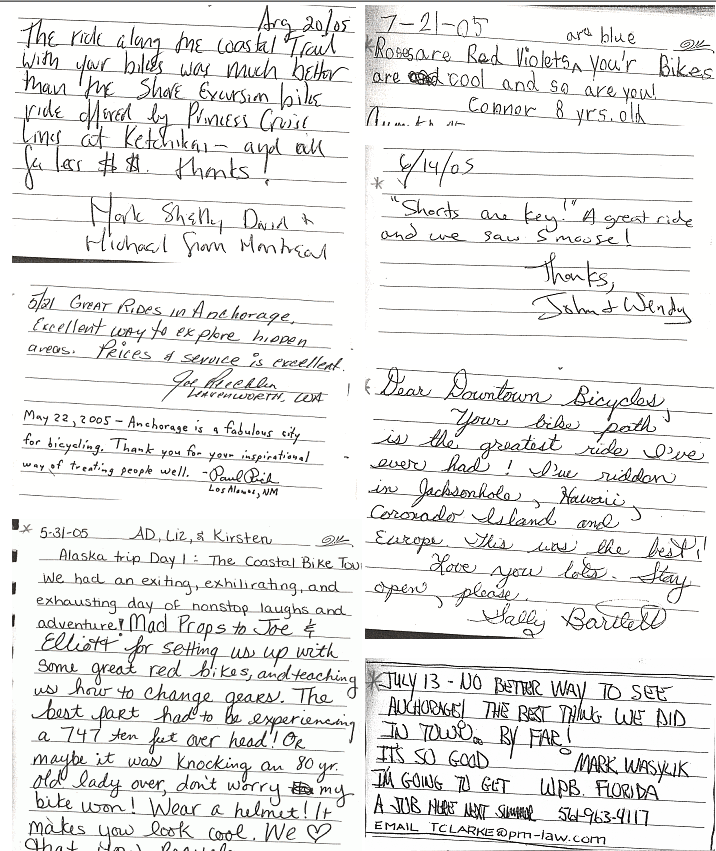 Aug 20/05
The ride along the coastal Trail
with your bikes was much better
than the Shore Excursion bike
ride offered by Princess Cruise
lines at Ketchikan - and all
for less $ $. Thanks!
Mark Shelly, David +
Michael from Montreal
5/21 GREAT RIDES in Anchorage.
Excellent way to explore hidden
areas. Prices & service is excellent.
Joe
LEAVENWORTH, WA
May 22, 2005 - Anchorage is a fabulous city
for bicycling. Thank you for your inspirational
way of treating people well. - Paul
Los Alamos, NM
* 5-31-05 AD, Liz, & Kirsten
Alaska trip Day 1: The Coastal Bike Tou
We had an exiting, exhilirating, and
exhausting day of nonstop laughs and
adventure! Mad Props to Joe &
Elliott for setting us up with
some great red bikes, and teaching
us how to change gears. The
best part had to be experiencing
a 747 ten feet over head! Or
maybe it was knocking an 80 yr.
old lady over, don't worry my
bike won! Wear a helmet! It
makes you look cool. We ♡
7-21-05
are blue
*Roses are Red Violets^ you'r Bikes
are cool and so are you!
Connor 8 yrs. old
6/14/05
*
"Shorts are key!" A great ride
and we saw 5 moose!
Thanks,
John & Wendy
Dear Downtown Bicycles,
Your bike path
is the greatest ride I've
ever had! I've riddon
in Jacksonhole, Hawaii,
Coronado Island and
Europe. This was the best!
Love you lots. Stay
open, please,
Sally Bartlett
*JULY 13 - NO BETTER WAY TO SEE
ANCHORAGE! THE BEST THING WE DID
IN TOWN.. BY FAR!
IT'S SO GOOD MARK WASYLIK
I'M GOING TO GET W.P.B. FLORIDA
A JOB HERE NEXT SUMMER 561-963-4117
EMAIL TCLARKE@pm-law.com